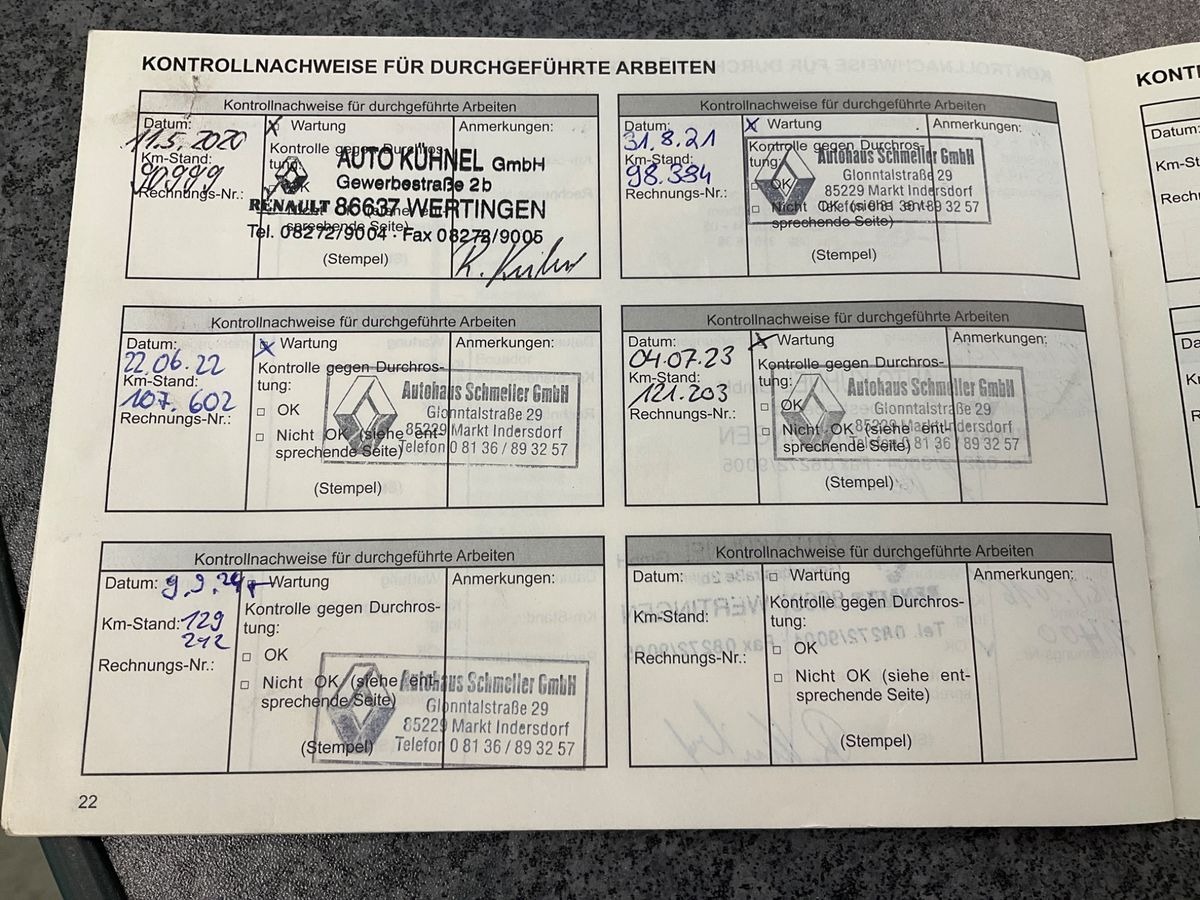 KONTROLLNACHWEISE FÜR DURCHGEFÜHRTE ARBEITEN
Kontrollnachweise für durchgeführte Arbeiten
Datum:
11.5.2020
Km-Stand:
90.999
Rechnungs-Nr.:
X Wartung
Kontrolle gegen Durchros-
tung:
OK
Nicht OK (siehe ent-
sprechende Seite)
(Stempel)
Anmerkungen:
AUTO KÜHNEL GmbH
Gewerbestraße 2b
RENAULT 86637 WERTINGEN
Tel. 08272/9004 · Fax 08272/9005
Kontrollnachweise für durchgeführte Arbeiten
Datum:
31.8.21
Km-Stand:
98.384
Rechnungs-Nr.:
X Wartung
Kontrolle gegen Durchros-
tung:
OK
Nicht OK (siehe ent-
sprechende Seite)
(Stempel)
Anmerkungen:
Autohaus Schmeller GmbH
Glonntalstraße 29
85229 Markt Indersdorf
Telefon 0 81 36 / 89 32 57
Kontrollnachweise für durchgeführte Arbeiten
Datum:
22.06.22
Km-Stand:
107.602
Rechnungs-Nr.:
X Wartung
Kontrolle gegen Durchros-
tung:
OK
Nicht OK (siehe ent-
sprechende Seite)
(Stempel)
Anmerkungen:
Autohaus Schmeller GmbH
Glonntalstraße 29
85229 Markt Indersdorf
Telefon 0 81 36 / 89 32 57
Kontrollnachweise für durchgeführte Arbeiten
Datum:
04.07.23
Km-Stand:
121.203
Rechnungs-Nr.:
X Wartung
Kontrolle gegen Durchros-
tung:
OK
Nicht OK (siehe ent-
sprechende Seite)
(Stempel)
Anmerkungen:
Autohaus Schmeller GmbH
Glonntalstraße 29
85229 Markt Indersdorf
Telefon 0 81 36 / 89 32 57
Kontrollnachweise für durchgeführte Arbeiten
Datum: 9.9.24
Km-Stand: 129
212
Rechnungs-Nr.:
Wartung
Kontrolle gegen Durchros-
tung:
OK
Nicht OK (siehe ent-
sprechende Seite)
(Stempel)
Anmerkungen:
Autohaus Schmeller GmbH
Glonntalstraße 29
85229 Markt Indersdorf
Telefon 0 81 36 / 89 32 57
Kontrollnachweise für durchgeführte Arbeiten
Datum:
Km-Stand:
Rechnungs-Nr.:
Wartung
Kontrolle gegen Durchros-
tung:
OK
Nicht OK (siehe ent-
sprechende Seite)
(Stempel)
Anmerkungen:
22
KONT
Datum:
Km-S
Rechn
Datu
Km-
Re